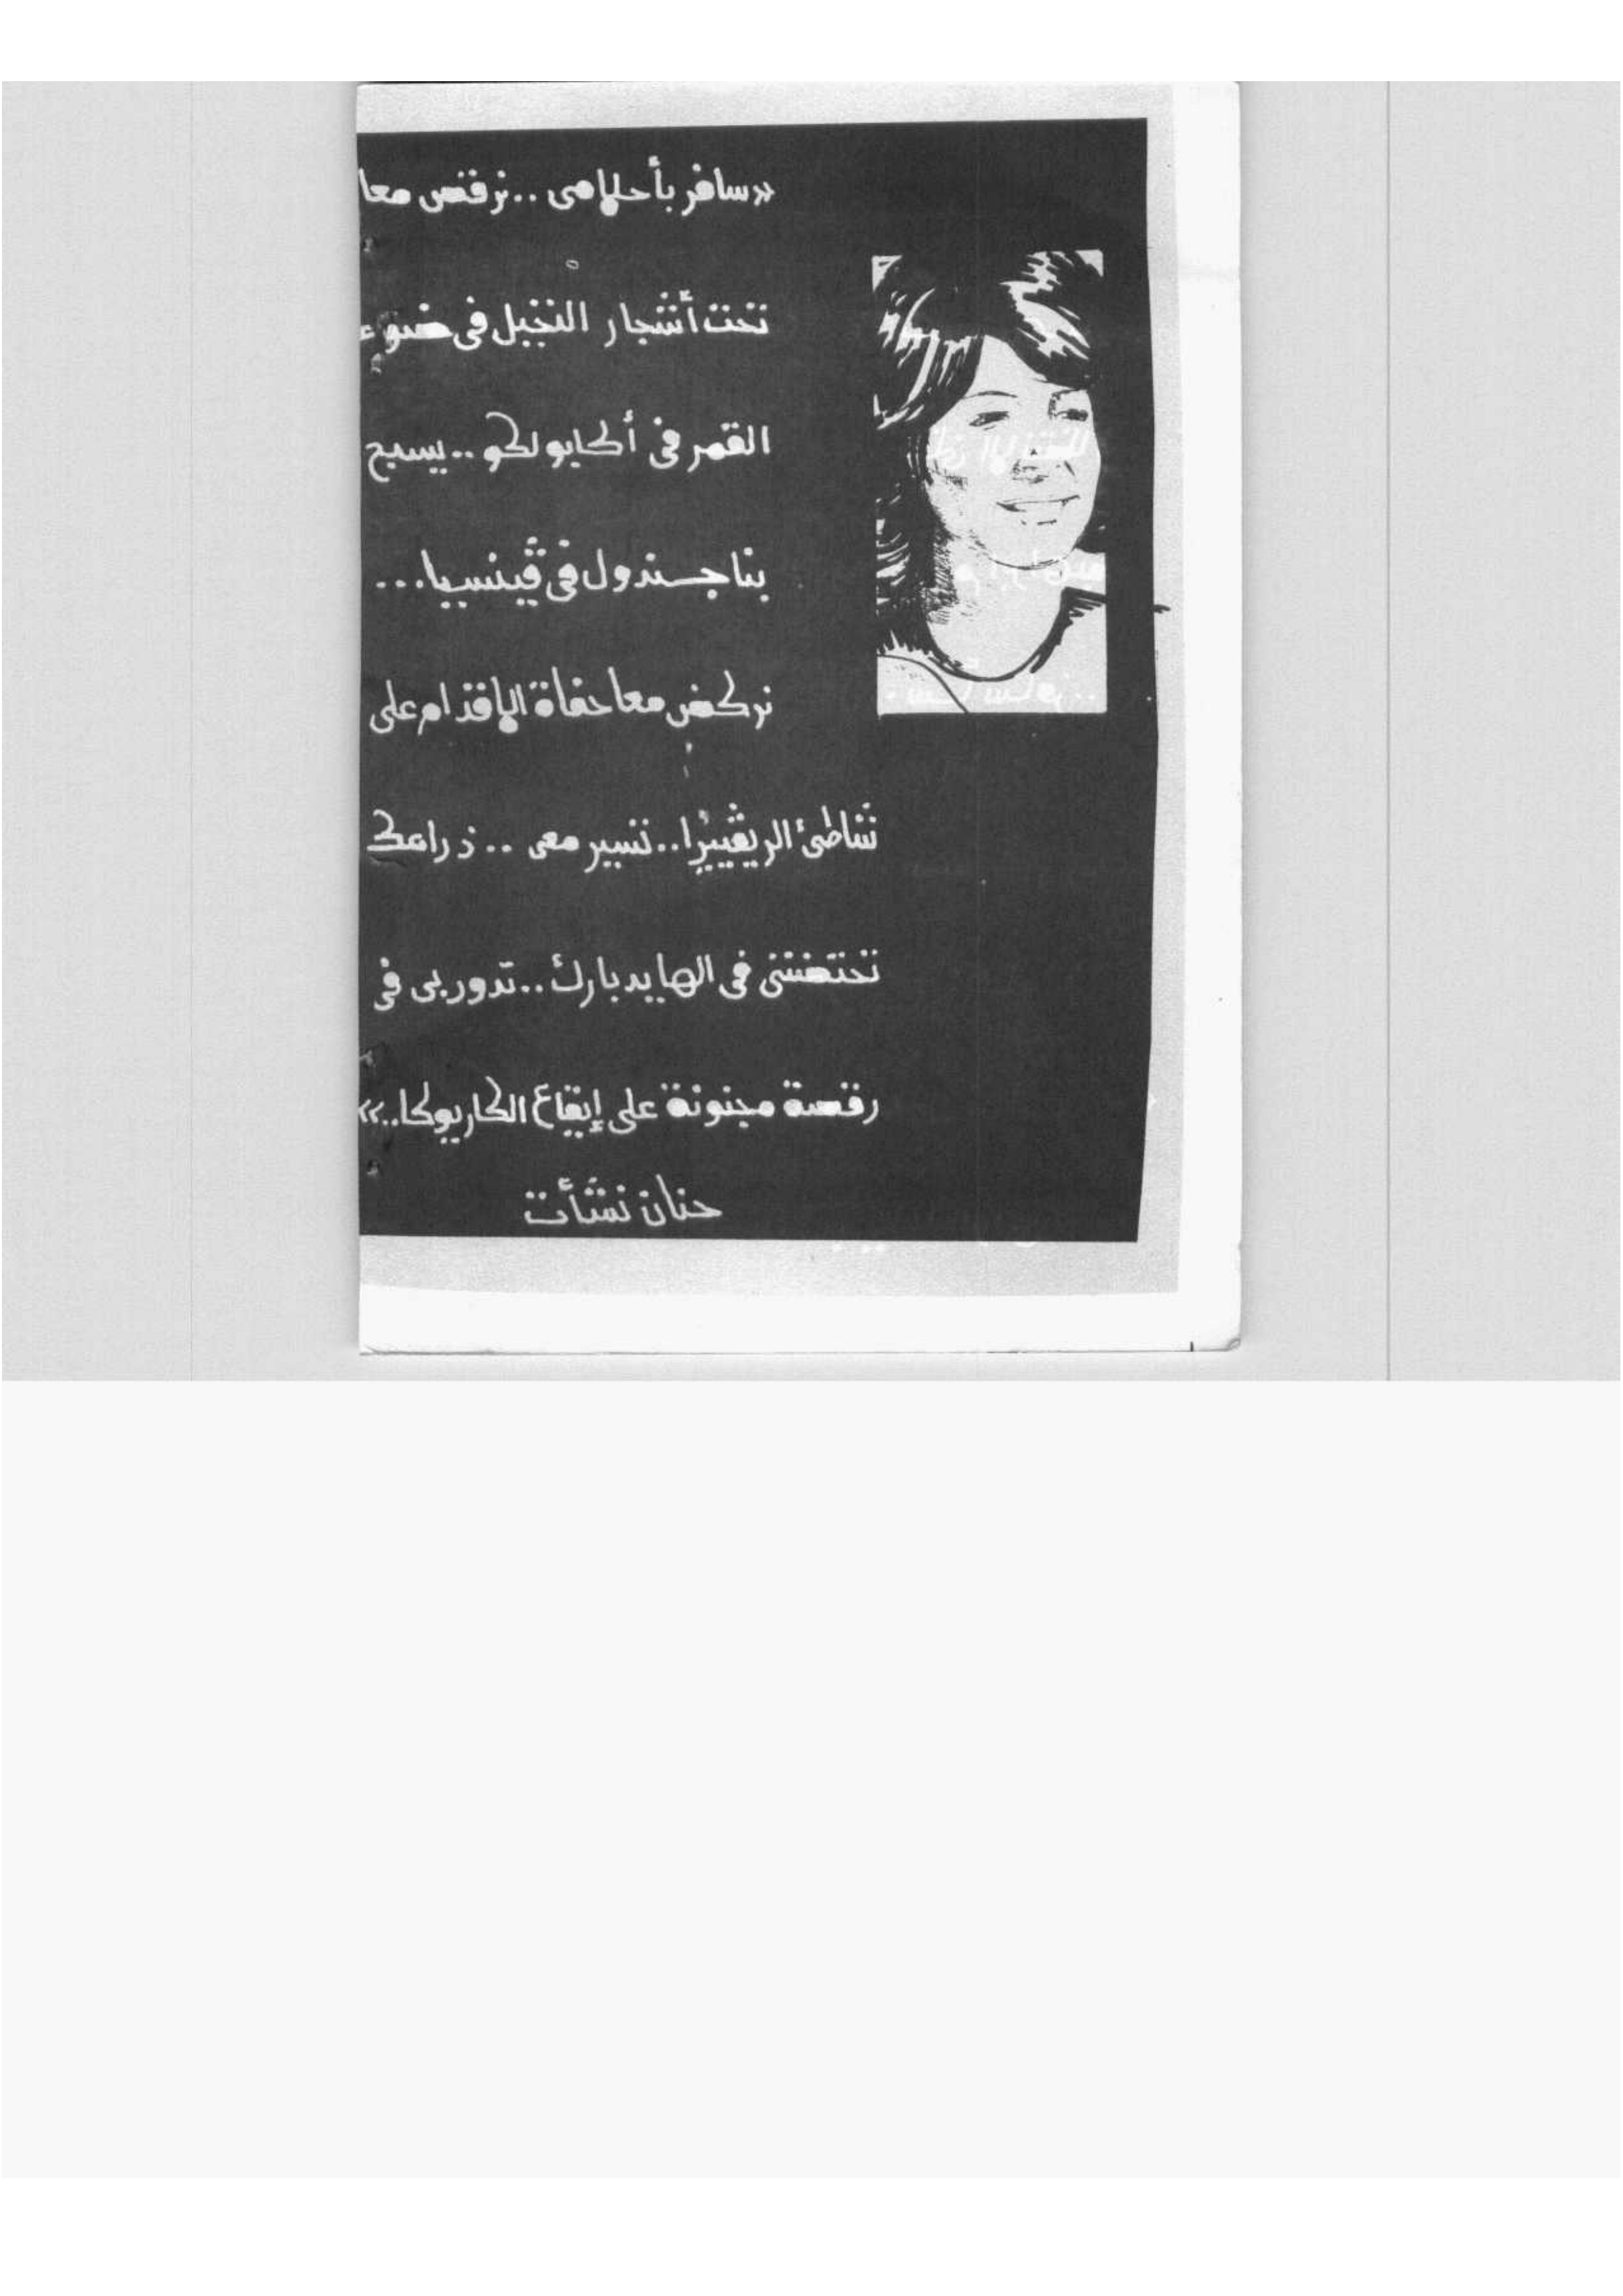 «سافر بأحلامى .. نرقص معا
تحت أشجار النخيل فى ضوء
القمر فى أكابولكو .. يسبح
بنا جندول فى ڤينسيا ...
نركض معا حفاة الأقدام على
شاطئ الريڤييرا .. تسير معى .. ذراعك
تحتضننى فى الهايد بارك .. تدور بى فى
رقصة مجنونة على إيقاع الكاريوكا ..»
حنان نشأت